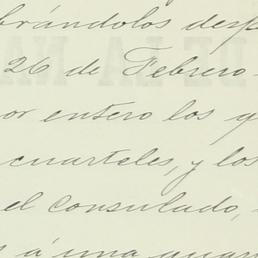 brándolos desp
26 de Febrero
or entero los q
cuarteles, y los
el consulado,
s á una guar